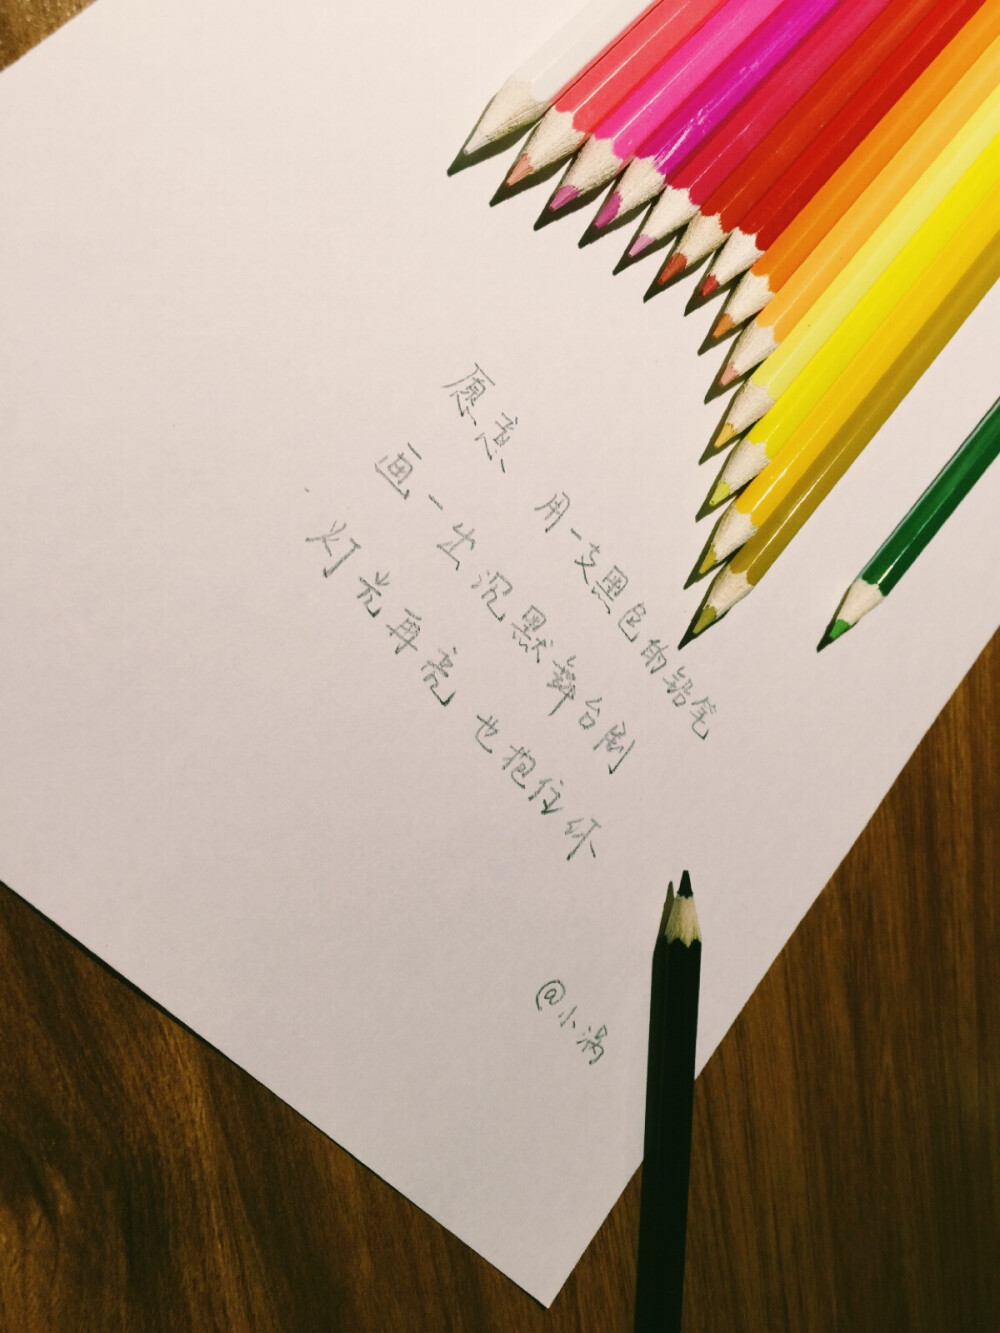 愿意 用一支黑色的铅笔
画一出沉默舞台剧
灯光再亮 也抱住你
@小涡